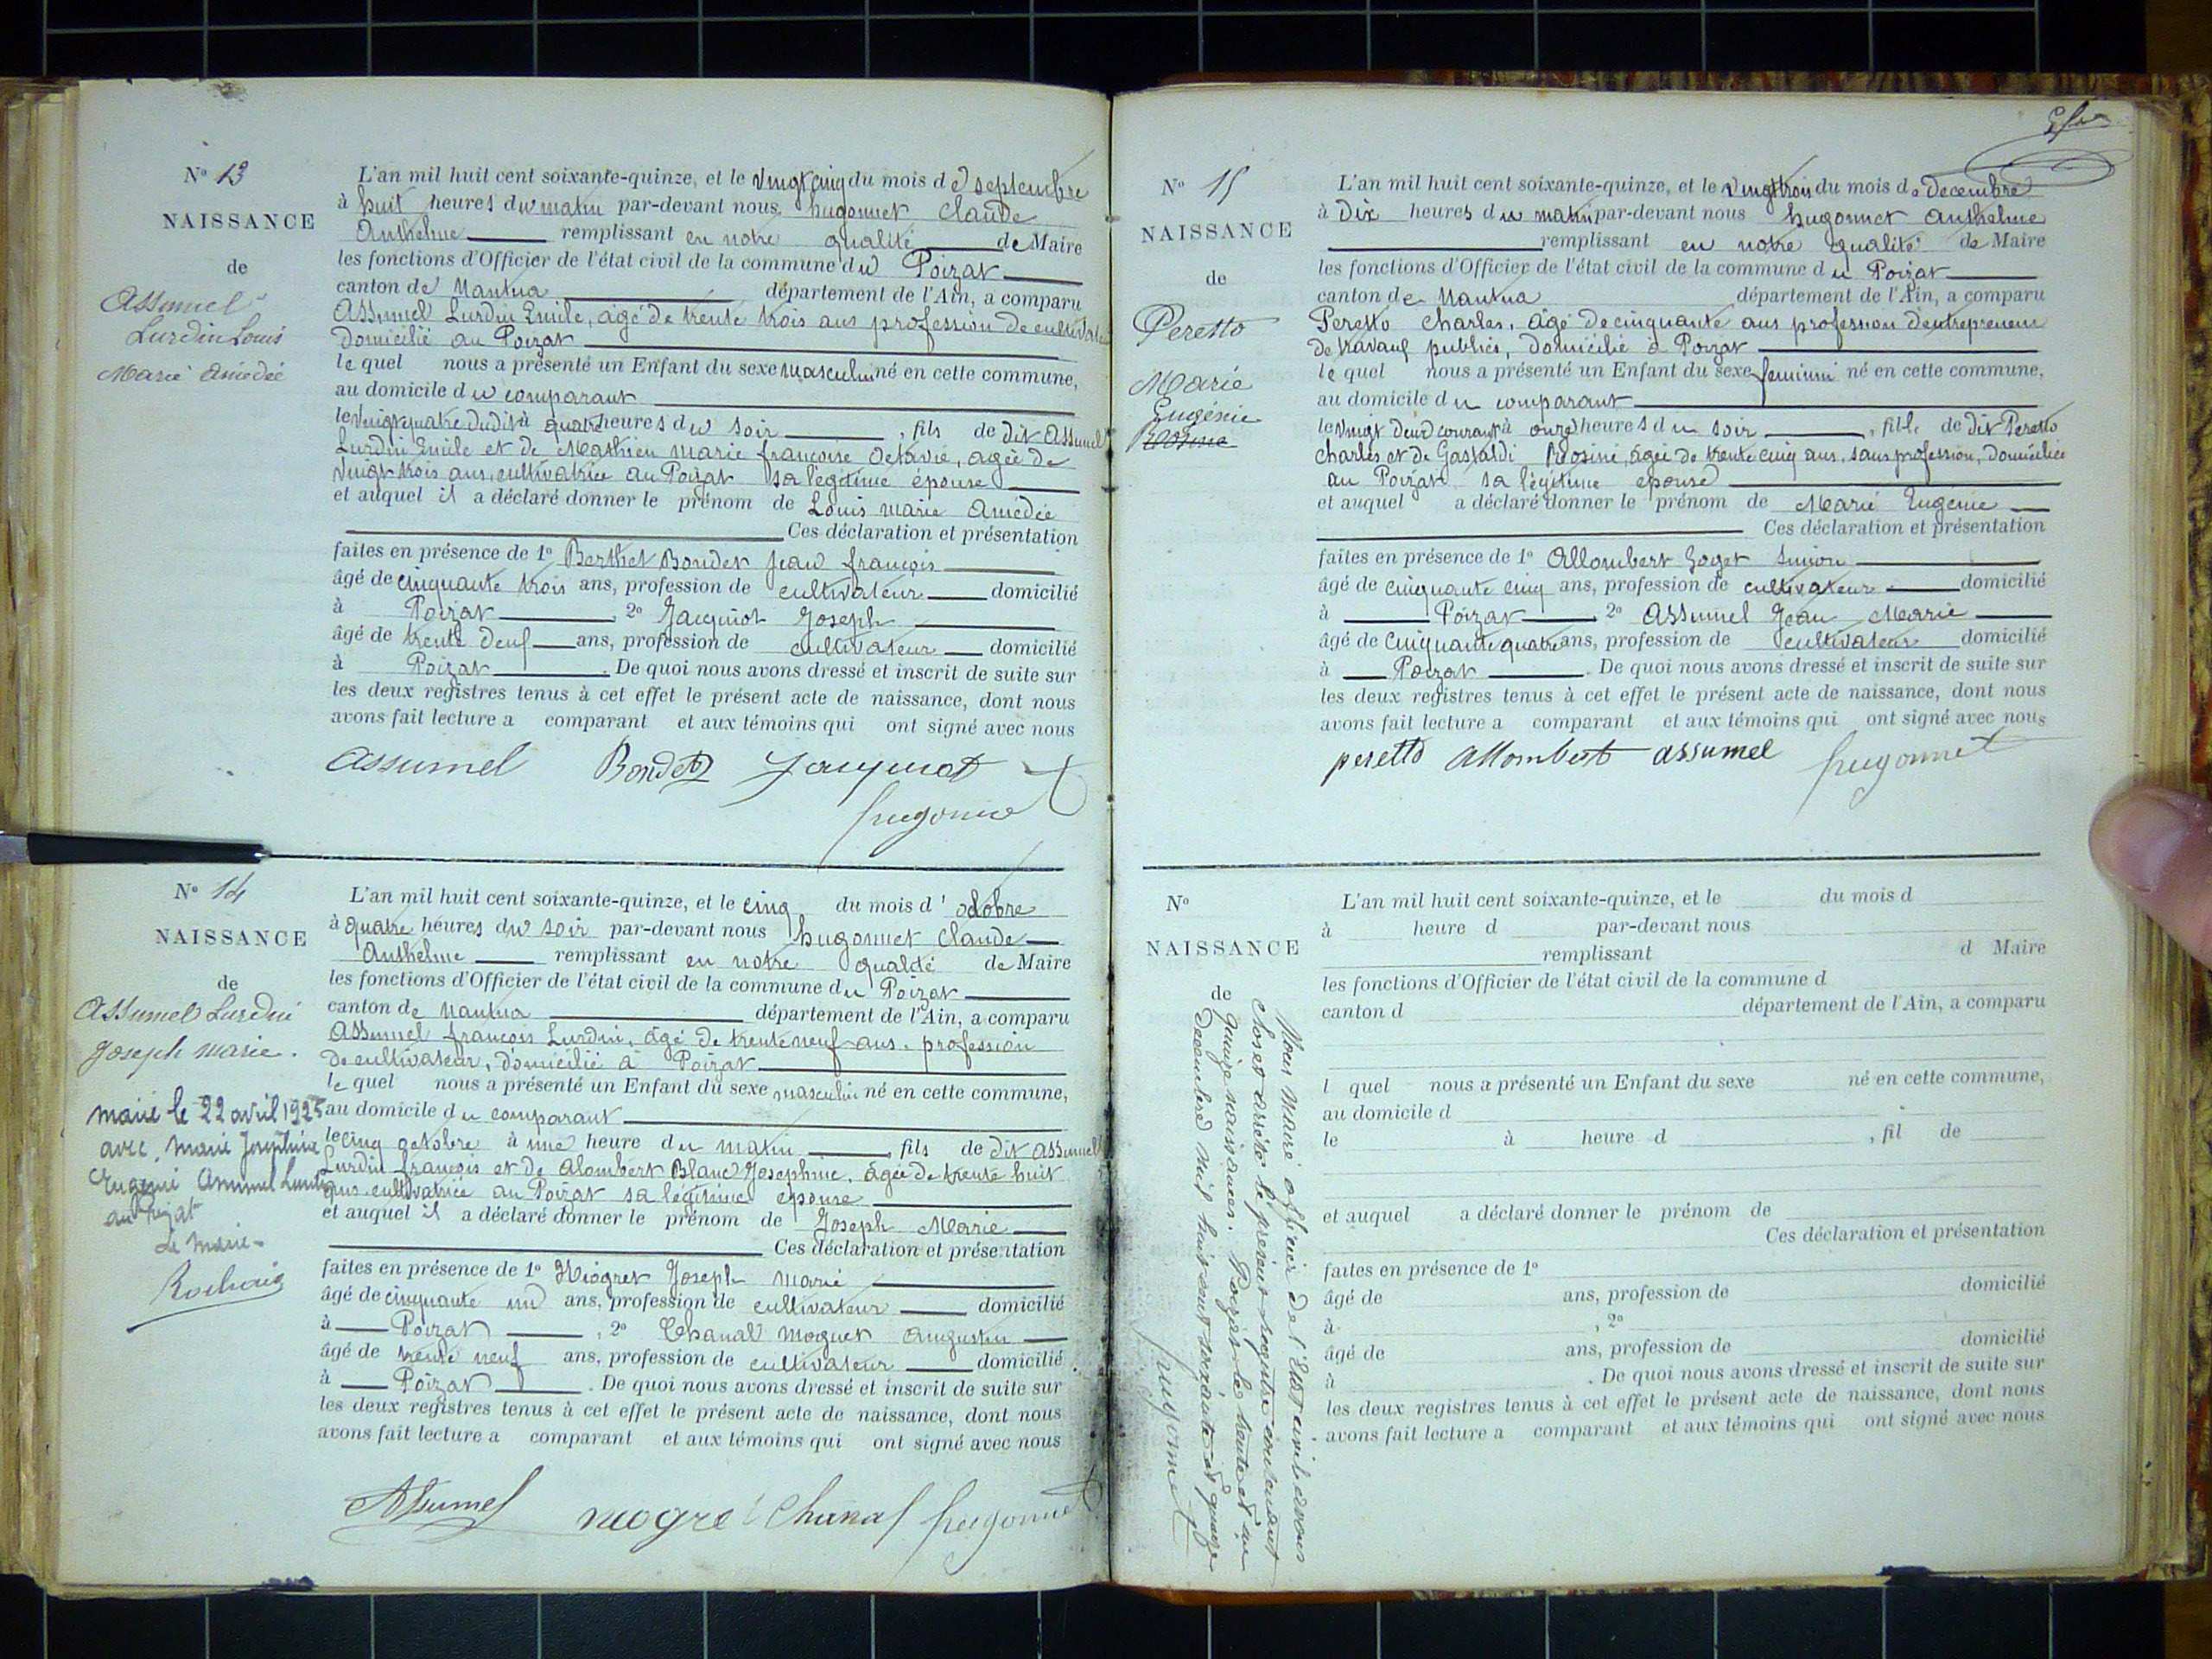 N° 13
NAISSANCE
de
Assumel
Lurdin Louis
Marie Amédée
L'an mil huit cent soixante-quinze, et le vingt cinq du mois de septembre
à huit heures du matin par-devant nous hugonnet Claude
Anthelme remplissant en notre qualité de Maire
les fonctions d'Officier de l'état civil de la commune du Poizat
canton de Nantua département de l'Ain, a comparu
Assumel Lurdin Emile, âgé de trente trois ans profession de cultivateur
domicilié au Poizat
le quel nous a présenté un Enfant du sexe masculin né en cette commune,
au domicile du comparant
le vingt quatre dudit à quatre heures du soir, fils de dit Assumel
Lurdin Emile et de Mathieu marie françoise Octavie, agée de
vingt trois ans, cultivatrice au Poizat sa légitime épouse
et auquel il a déclaré donner le prénom de Louis marie Amédée
Ces déclaration et présentation
faites en présence de 1° Berthet Bondet Jean françois
âgé de cinquante trois ans, profession de cultivateur domicilié
à Poizat 2° Jacquiot Joseph
âgé de trente deux ans, profession de cultivateur domicilié
à Poizat. De quoi nous avons dressé et inscrit de suite sur
les deux registres tenus à cet effet le présent acte de naissance, dont nous
avons fait lecture a comparant et aux témoins qui ont signé avec nous
Assumel Bondet Jacquiot
hugonnet
N° 14
NAISSANCE
de
Assumel Lurdin
Joseph marie.
marié le 22 avril 1925
avec Marie Joséphine
Eugénie Assumel Lurdin
au Poizat
Le maire
L'an mil huit cent soixante-quinze, et le cinq du mois d'octobre
à quatre heures du soir par-devant nous hugonnet Claude
Anthelme remplissant en notre qualité de Maire
les fonctions d'Officier de l'état civil de la commune du Poizat
canton de Nantua département de l'Ain, a comparu
Assumel françois Lurdin, âgé de trente neuf ans. profession
de cultivateur, domicilié à Poizat
le quel nous a présenté un Enfant du sexe masculin né en cette commune,
au domicile du comparant
le cinq octobre à une heure du matin, fils de dit Assumel
Lurdin françois et de Alombert Blanc Josephine, âgée de trente huit
ans cultivatrice au Poizat sa légitime epouse
et auquel il a déclaré donner le prénom de Joseph Marie
Ces déclaration et présentation
faites en présence de 1° Miogret Joseph Marie
âgé de cinquante un ans, profession de cultivateur domicilié
à Poizat, 2° Chanal Moguet Augustin
âgé de trente neuf ans, profession de cultivateur domicilié
à Poizat. De quoi nous avons dressé et inscrit de suite sur
les deux registres tenus à cet effet le présent acte de naissance, dont nous
avons fait lecture a comparant et aux témoins qui ont signé avec nous
Assumel miogret Chanal hugonnet
N° 15
NAISSANCE
de
Peretto
Marie
Eugénie
Rosine
L'an mil huit cent soixante-quinze, et le vingt trois du mois de decembre
à Dix heures du matin par-devant nous hugonnet Anthelme
remplissant en notre qualité de Maire
les fonctions d'Officier de l'état civil de la commune du Poizat
canton de Nantua département de l'Ain, a comparu
Peretto Charles, âgé de cinquante ans profession d'entrepreneur
de travaux publics, domicilié à Poizat
le quel nous a présenté un Enfant du sexe feminin né en cette commune,
au domicile du comparant
le vingt deux courant à onze heures du soir, fille de dit Peretto
Charles et de Gastaldi Rosine, âgée de trente cinq ans, sans profession, domiciliée
au Poizat sa légitime epouse
et auquel a déclaré donner le prénom de Marie Eugenie
Ces déclaration et présentation
faites en présence de 1° Allombert Goget Simon
âgé de cinquante cinq ans, profession de cultivateur domicilié
à Poizat 2° Assumel Jean Marie
âgé de cinquante quatre ans, profession de cultivateur domicilié
à Poizat. De quoi nous avons dressé et inscrit de suite sur
les deux registres tenus à cet effet le présent acte de naissance, dont nous
avons fait lecture a comparant et aux témoins qui ont signé avec nous
peretto Allombert assumel hugonnet
N°
NAISSANCE
de
Nous Maire officier de l'Etat civil avons
Clos et arrêté le présent registre contenant
quinze naissances. Poizat le trente et un
Decembre mil huit cent soixante et quinze
hugonnet
L'an mil huit cent soixante-quinze, et le du mois d
à heure d par-devant nous
remplissant d Maire
les fonctions d'Officier de l'état civil de la commune d
canton d département de l'Ain, a comparu
l quel nous a présenté un Enfant du sexe né en cette commune,
au domicile d
le à heure d, fil de
et auquel a déclaré donner le prénom de
Ces déclaration et présentation
faites en présence de 1°
âgé de ans, profession de domicilié
à, 2°
âgé de ans, profession de domicilié
à. De quoi nous avons dressé et inscrit de suite sur
les deux registres tenus à cet effet le présent acte de naissance, dont nous
avons fait lecture a comparant et aux témoins qui ont signé avec nous